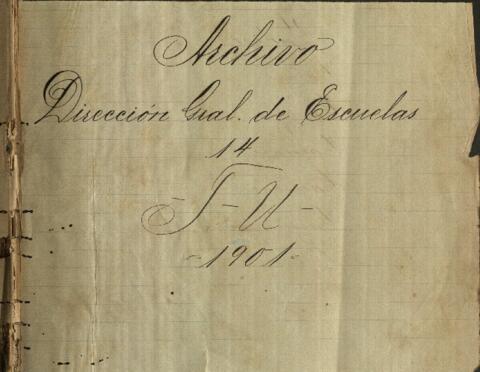 Archivo
Dirección Gral. de Escuelas
14
- T - U -
- 1901 -